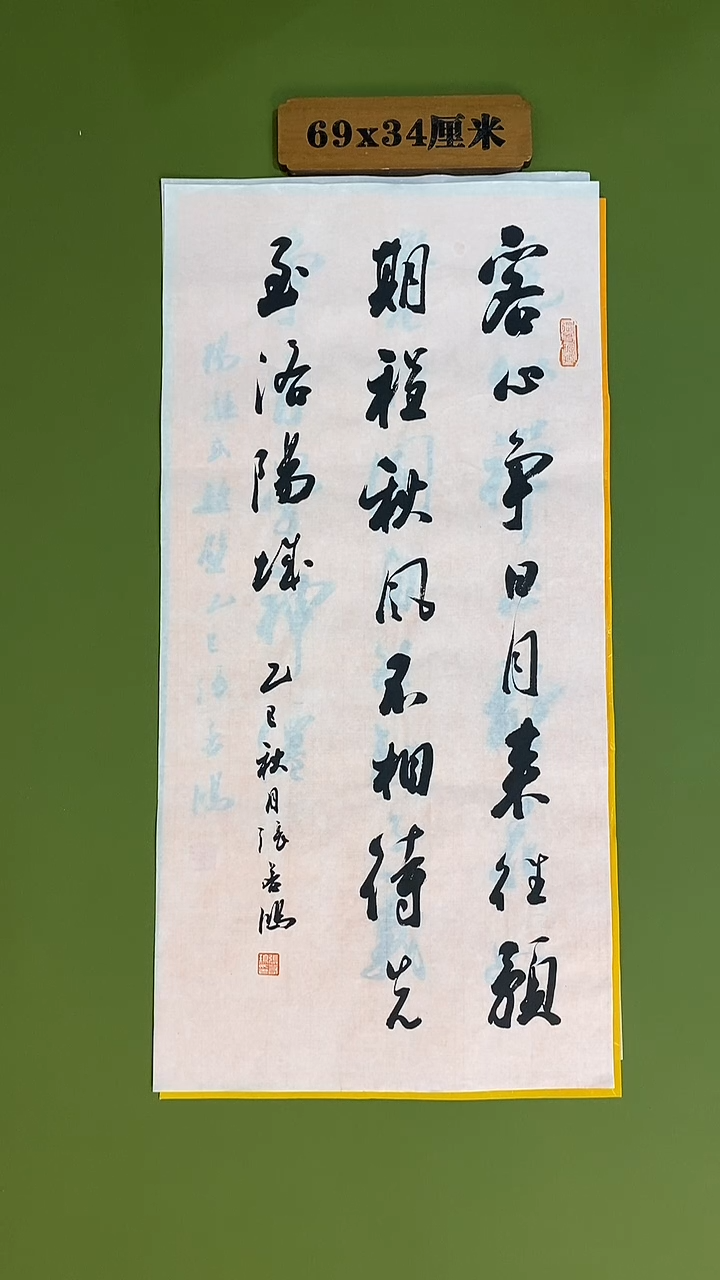 69x34厘米
客心争日月来往預
期程秋风不相待先
至洛陽城
乙巳秋月張若鴻